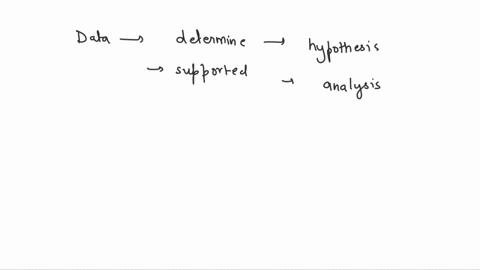 Data → determine → hypothesis
→ supported → analysis